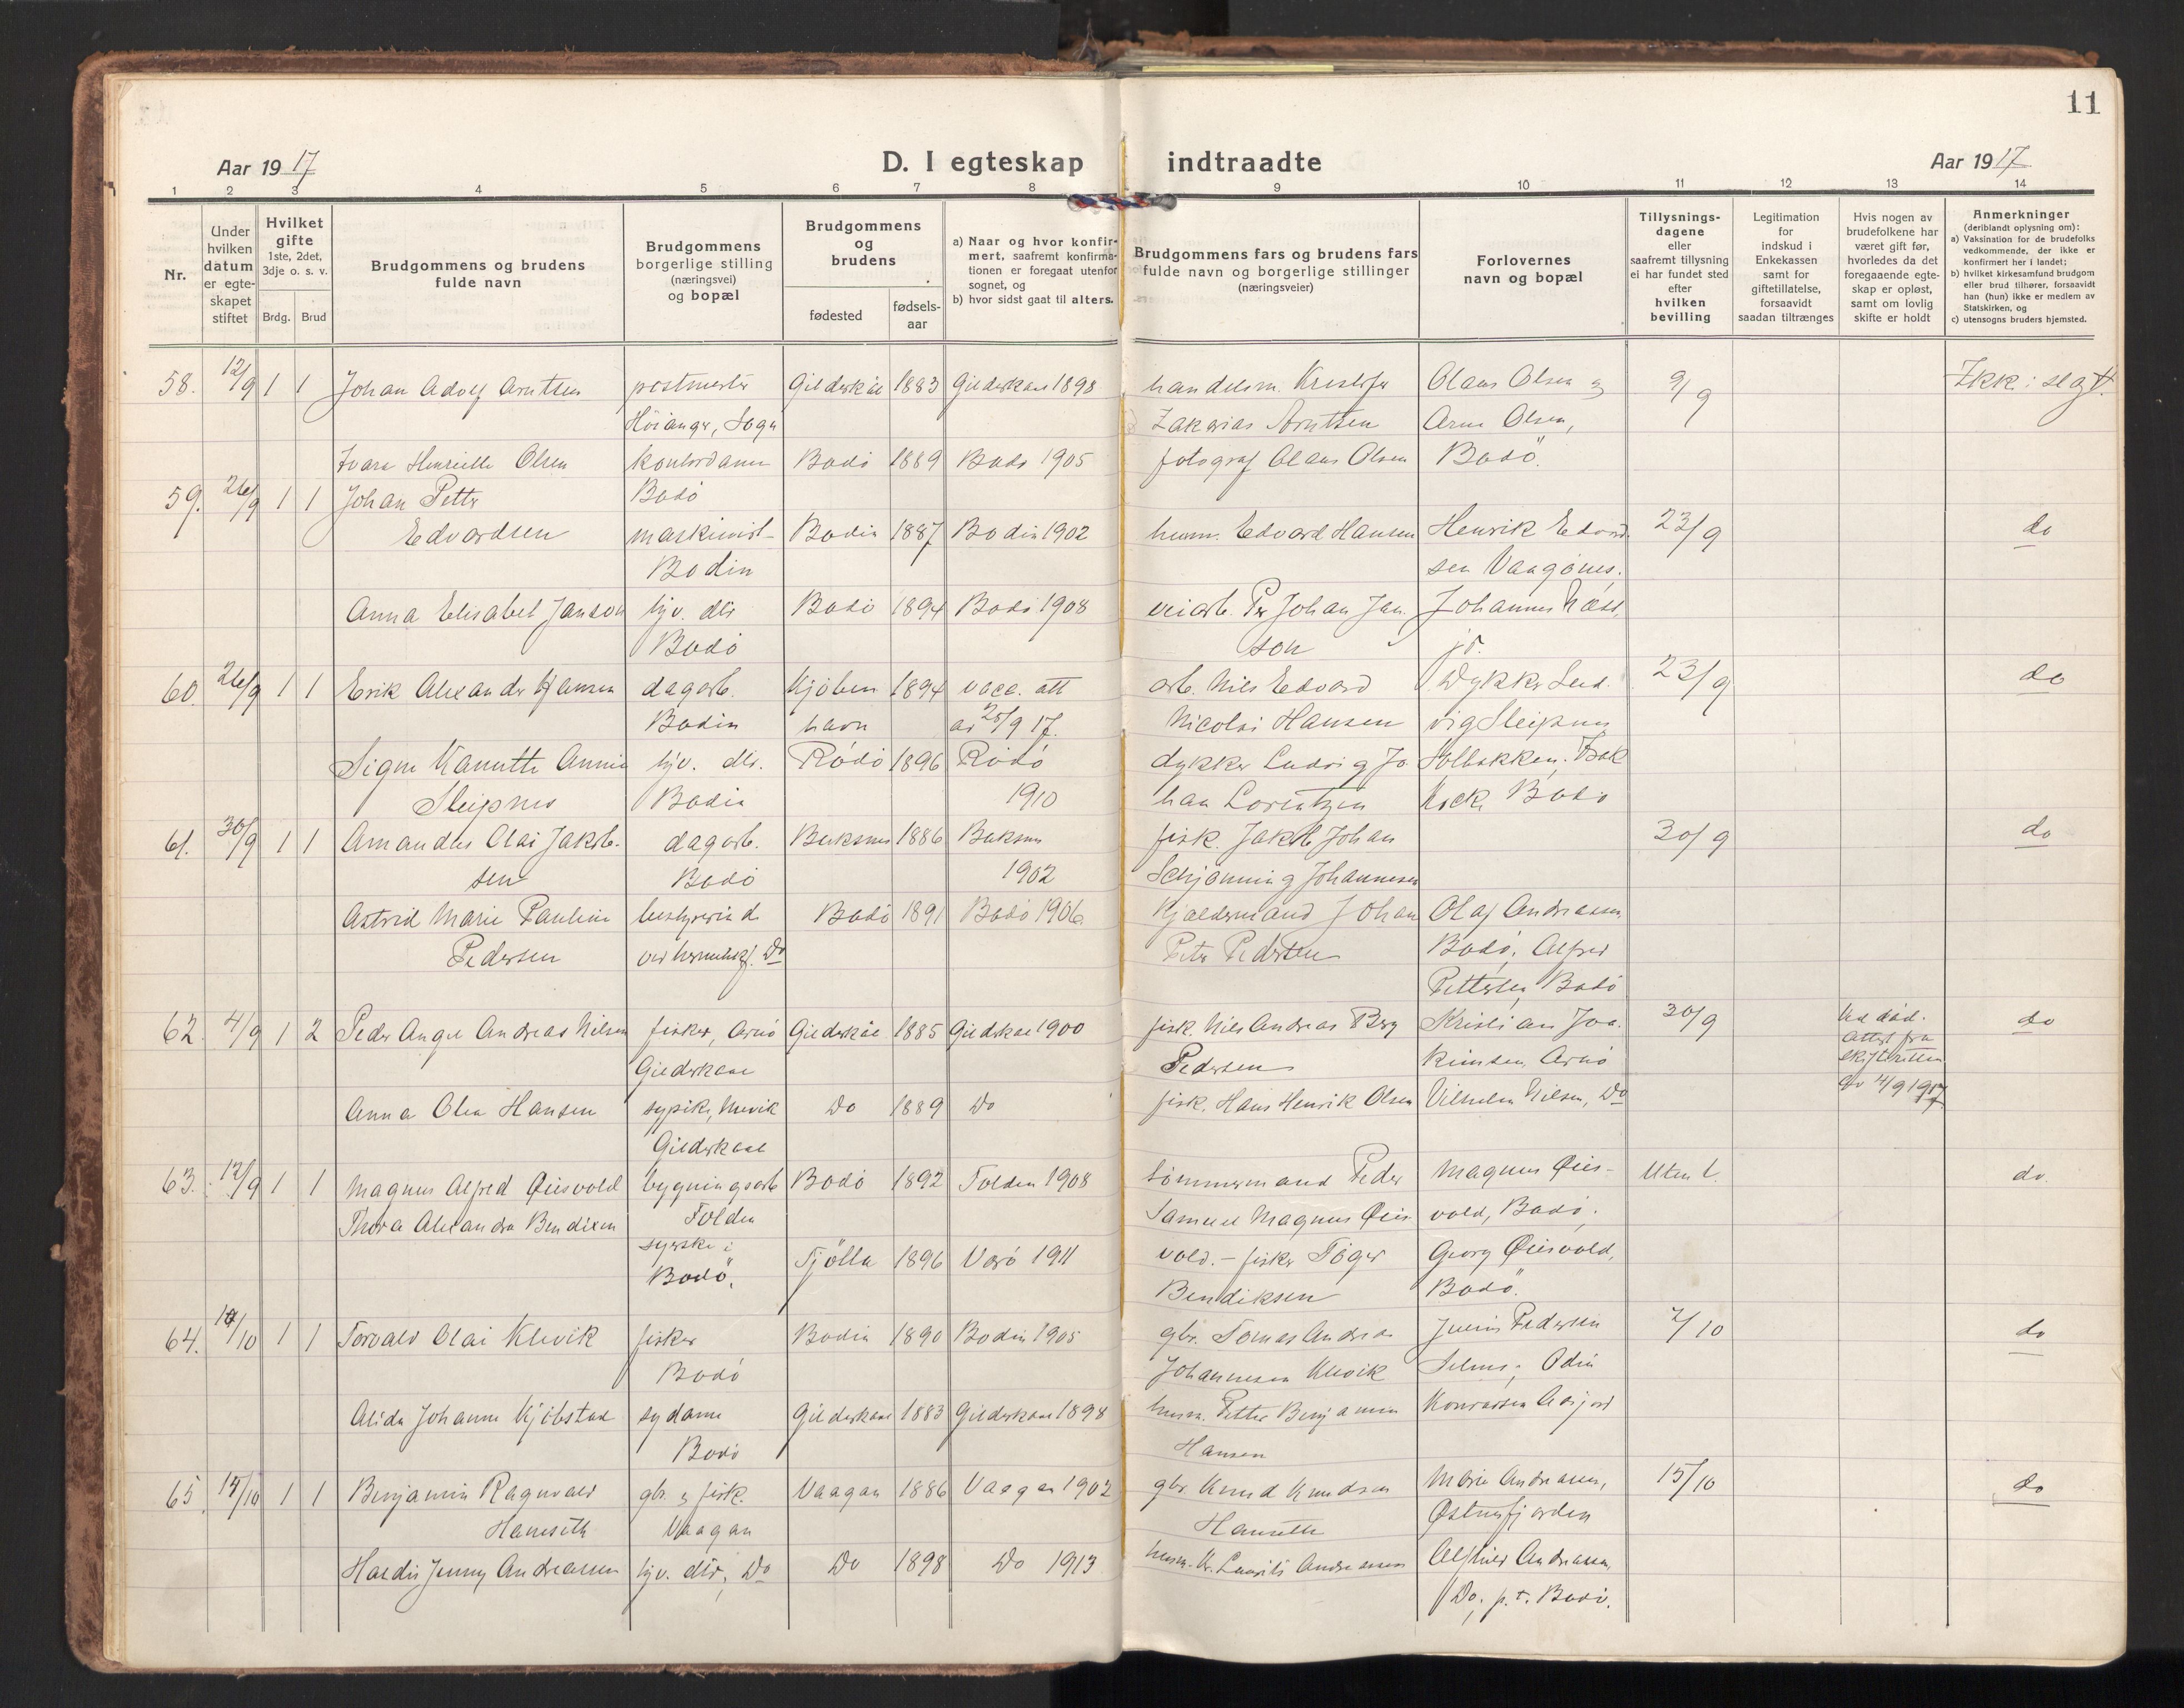 11
Aar 1917
D. I egteskap indtraadte
Aar 1917
1 2 3 4 5 6 7 8 9 10 11 12 13 14
Nr.
Under hvilken datum er egte-skapet stiftet
Hvilket gifte 1ste, 2det, 3dje o. s. v.
Brdg. Brud
Brudgommens og brudens fulde navn
Brudgommens borgerlige stilling (næringsvei) og bopæl
Brudgommens og brudens
fødested
fødsels-aar
a) Naar og hvor konfir-mert, saafremt konfirma-tionen er foregaat utenfor sognet, og
b) hvor sidst gaat til alters.
Brudgommens fars og brudens fars fulde navn og borgerlige stillinger (næringsveier)
Forlovernes navn og bopæl
Tillysnings-dagene eller saafremt tillysning ei har fundet sted efter hvilken bevilling
Legitimation for indskud i Enkekassen samt for giftetillatelse, forsaavidt saadan tiltrænges
Hvis nogen av brudefolkene har været gift før, hvorledes da det foregaaende egte-skap er opløst, samt om lovlig skifte er holdt
Anmerkninger (deriblandt oplysning om):
a) Vaksination for de brudefolks vedkommende, der ikke er konfirmert her i landet;
b) hvilket kirkesamfund brudgom eller brud tilhører, forsaavidt han (hun) ikke er medlem av Statskirken, og
c) utensogns bruders hjemsted.
58. 12/9 1 1 Johan Adolf Arntsen postmester Gilderskål 1883 Gilderskaal 1898 handelsm. Kristofer Olaus Olsen og 9/9 Ikk. slegt.
Höianger, Sogn Zakarias Arntsen Arne Olsen,
Ivara Henriette Olsen kontordame Bodö 1889 Bodö 1905 fotograf Olaus Olsen Bodö.
59. 26/9 1 1 Johan Petter Bodö
Edvardsen maskinist Bodin 1887 Bodin 1902 husm. Edvard Hansen Henrik Edvard 23/9 do
Bodin sen Vaagönes.
Anna Elisabet Janson hjv. dtr Bodö 1894 Bodö 1908 veiarb. Per Johan Jan Johannes Næss,
Bodö son jr.
60. 26/9 1 1 Erik Alexander Hansen dagarb. Kjöben 1894 vacc. att arb. Nils Edvard Dykker Lud. 23/9 do
Bodin havn av 25/9 17. Nicolai Hansen vig Sleipnes
Signe Kanutte Annie hjv. dtr. Rödö 1896 Rödö dykker Ludvig Jo Solbakken. Isak
Sleipnes Bodin 1910 han Lorentzen Kock, Bodö
61. 30/9 1 1 Amandus Olai Jakob- dagarb. Buksnes 1886 Buksnes fisk. Jakob Johan 30/9 do
sen Bodö 1902 Schjönning Johannesen
Astrid Marie Pauline bestyrerinde Bodö 1891 Bodö 1906 Kjældermand Johan Olaf Andreassen
Pedersen Do Peter Pedersen Bodö, Alfred
Pettersen, Bodö
62. 4/9 1 2 Peder Angel Andreas Nilsen fisker, Arnö Gilderskål 1885 Gildskaal 1900 fisk. Nils Andreas Berg Kristian Joa- 30/9 do
Gilderskaal Pedersen kimsen, Arnö
Attest fra
skifteretten
av 4/9 1917
Anna Olea Hansen sypike, Inevik Do 1889 Do fisk. Hans Henrik Olsen Vilhelm Nilsen, Do
Gilderskaal
63. 12/9 1 1 Magnus Alfred Öiesvold bygningsarb Bodö 1892 Folden 1908 tömmermand Peder Magnus Öies- Uten l. do.
Thora Alexandra Bendixen Folden Samuel Magnus Öies vold, Bodö,
syerske i Tjötta 1896 Værö 1911 vold. - fisker Töger Georg Öiesvold,
Bodö. Bendiksen Bodö.
64. 14/10 1 1 Torvald Olai Klevik fisker Bodin 1890 Bodin 1905 gbr. Tomas Andreas Julius Pedersen 7/10 do
Bodö Johannesen Klevik Odin
Alida Johanne Kjöbstad sydame Gilderskaal 1883 Gilderskaal 1898 husm. Petter Benjamin Konradsen
Bodö Hansen
65 15/10 1 1 Benjamin Ragnvald gbr. og fisk. Vaagan 1886 Vaagan 1902 gbr. Knud Knudsen Marie Andreassen, 15/10 do
Hanseth Vaagan Hanseth Östnesfjorden
Haldis Jenny Andreassen hjv. dtr, Do Do 1898 Do 1913 husm. Kr. Laurits Andreassen Alfhild Andreassen,
Do, p. t. Bodö.